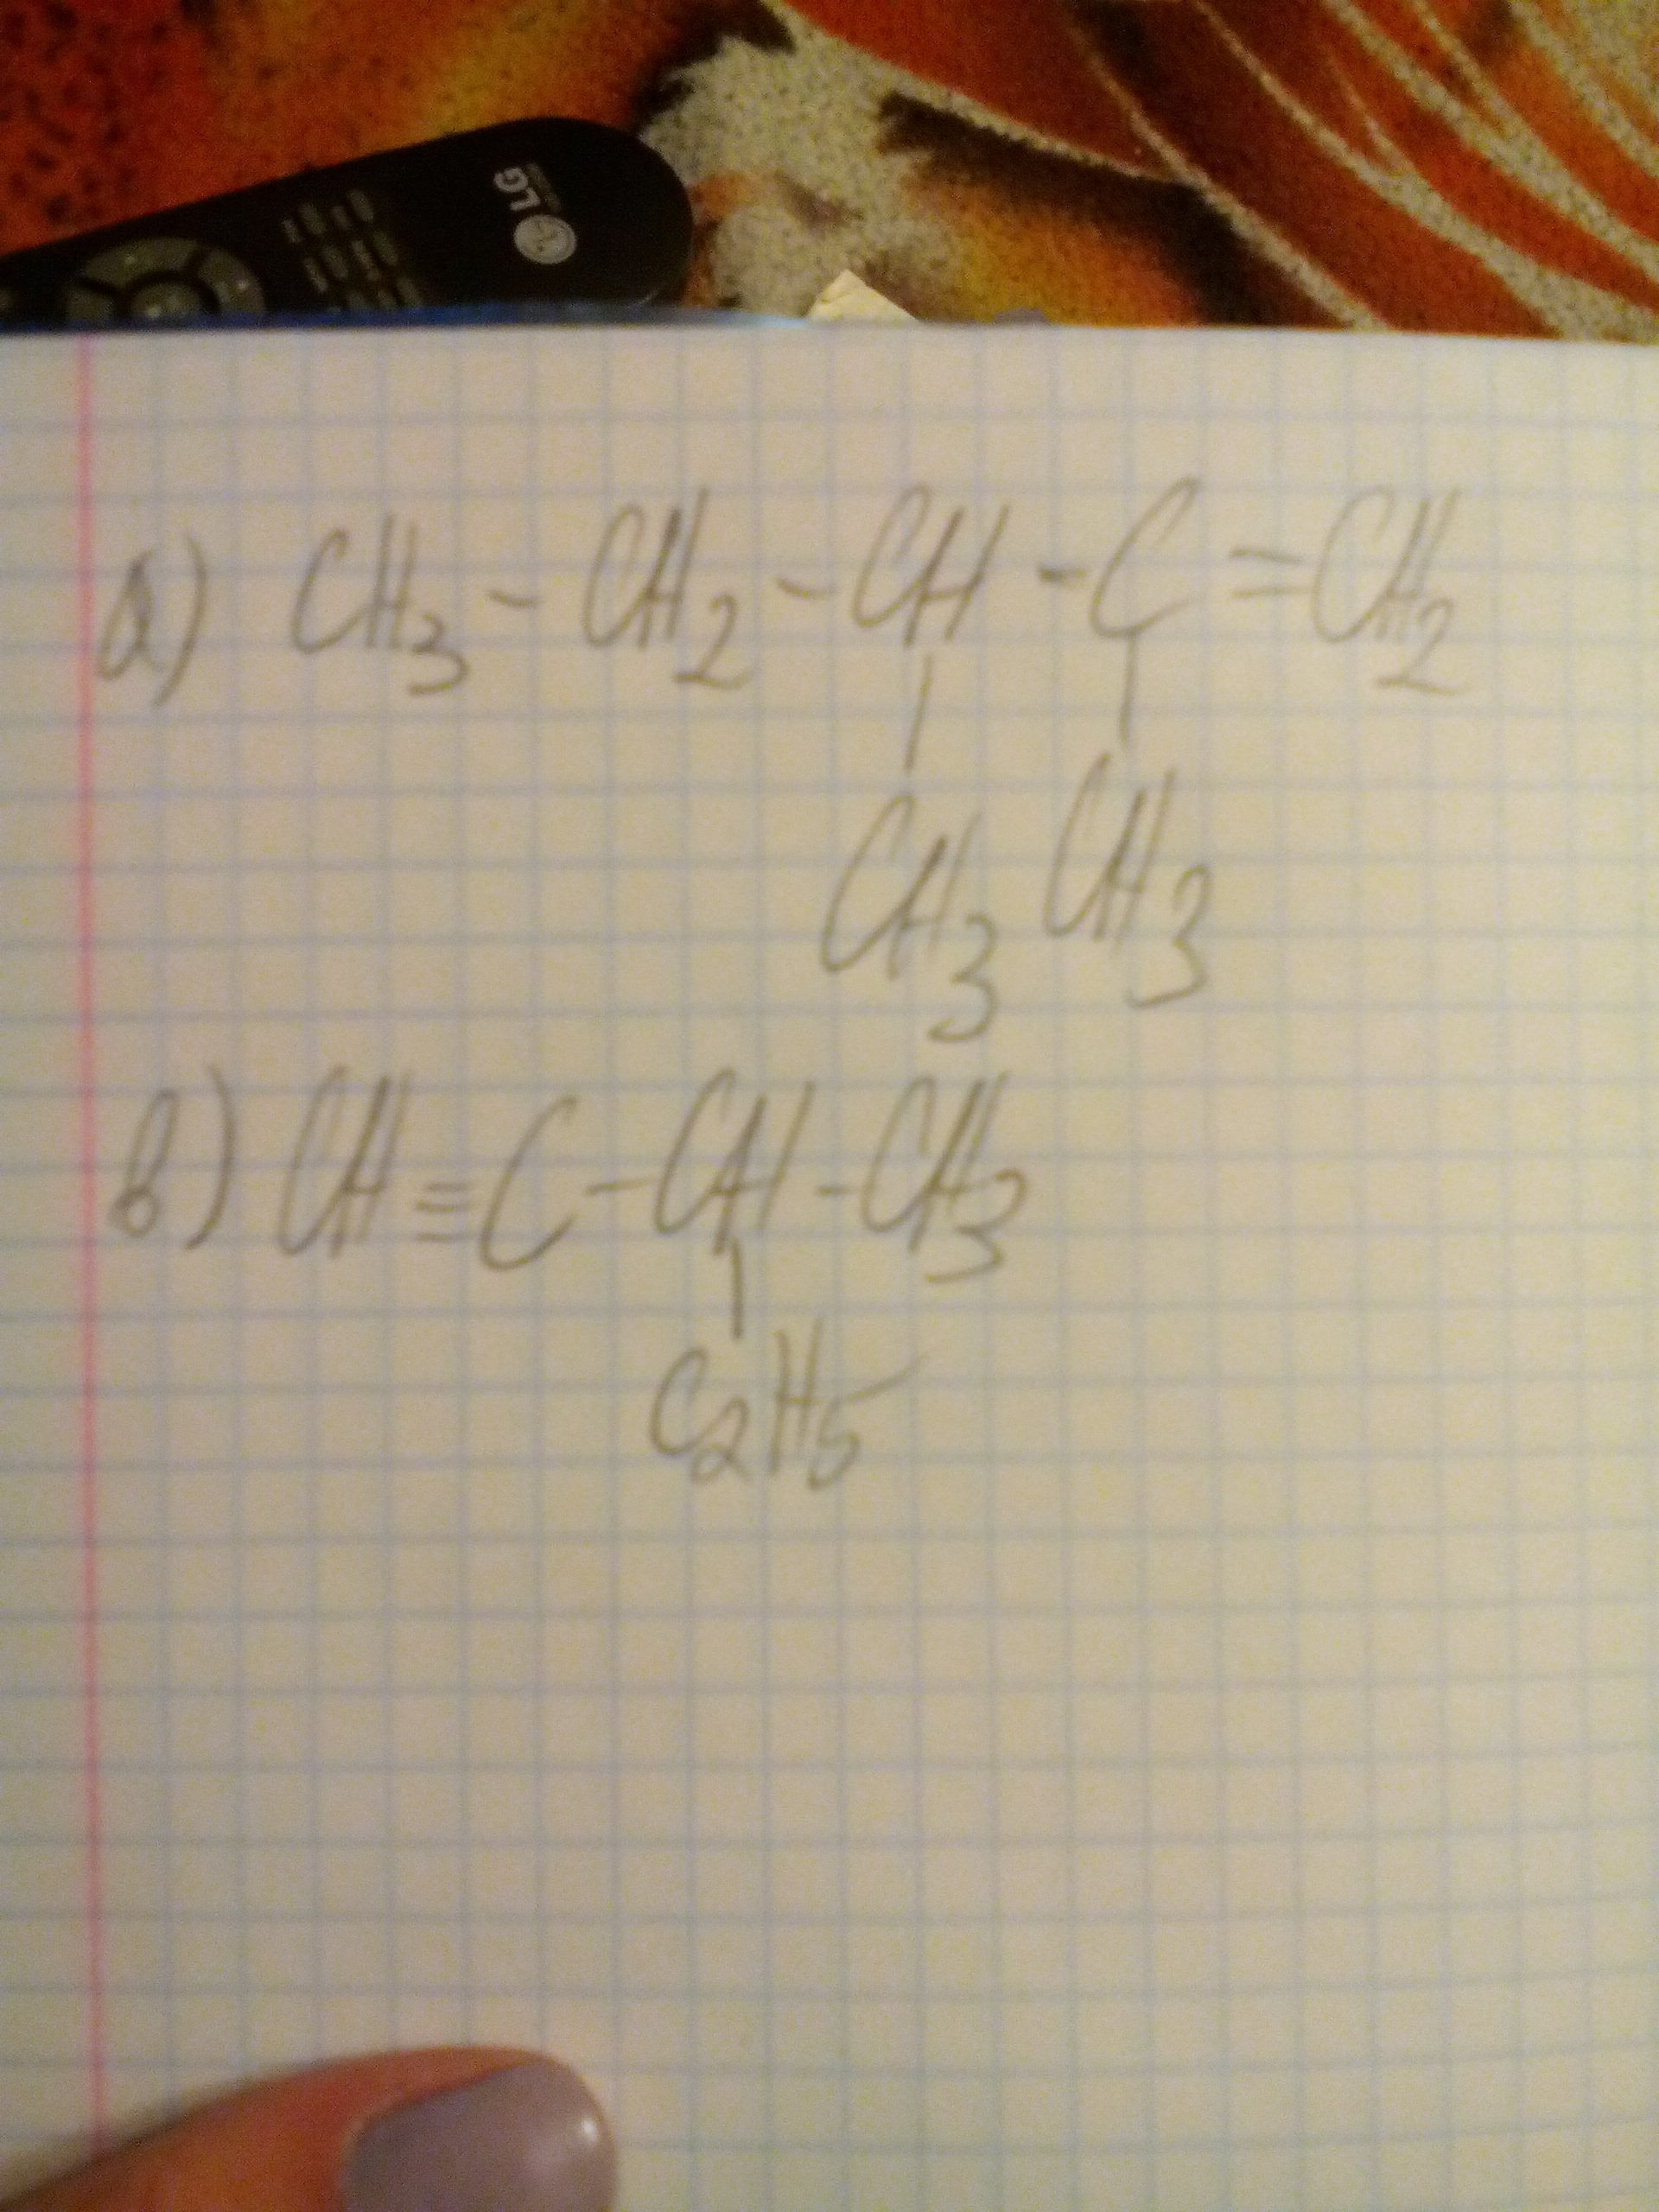 LG
а) CH3 - CH2 - CH - C = CH2
CH3 CH3
в) CH ≡ C - CH - CH3
C2H5